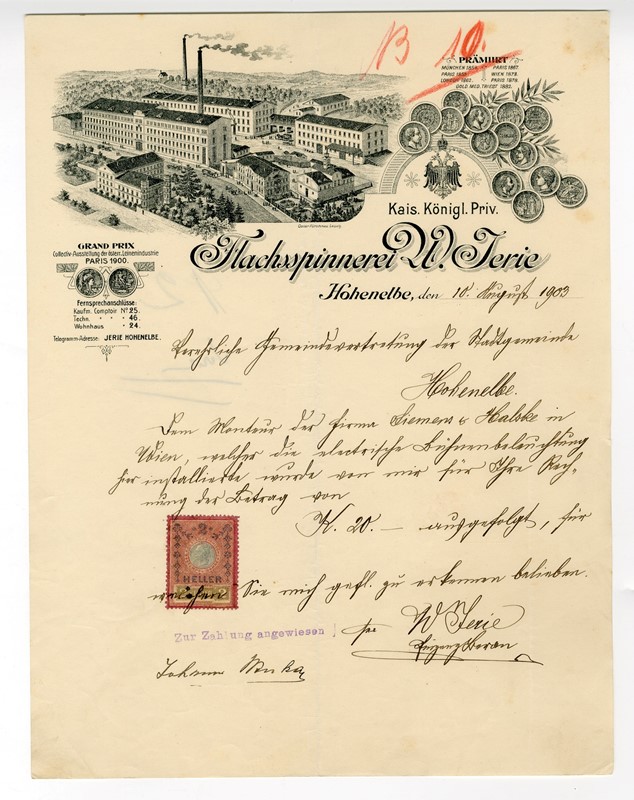 B 19.
PRÄMIIRT
MÜNCHEN 1854. PARIS 1867.
PARIS 1855. WIEN 1873.
LONDON 1862. PARIS 1878.
GOLD. MED. TRIEST 1882.
Kais. Königl. Priv.
Flachsspinnerei W. Jerie
GRAND PRIX
Collectiv-Ausstellung der österr. Leinenindustrie
PARIS 1900.
Fernsprechanschlüsse:
Kaufm. Comptoir No 25.
Techn. " " 46.
Wohnhaus " 24.
Telegramm-Adresse: JERIE HOHENELBE.
Hohenelbe, den 18. August 1903
Verehrliche Gemeindevertretung der Stadtgemeinde
Hohenelbe.
Dem Monteur der Firma Siemens & Halske in
Wien, welcher die electrische Bühnenbeleuchtung
hier installierte wurde von mir für Ihre Rech-
nung der Betrag von
K. 20.— ausgefolgt, für
HELLER
welchen Sie mich gefl. zu erkennen belieben.
Zur Zahlung angewiesen
ppa W Jerie
Johann